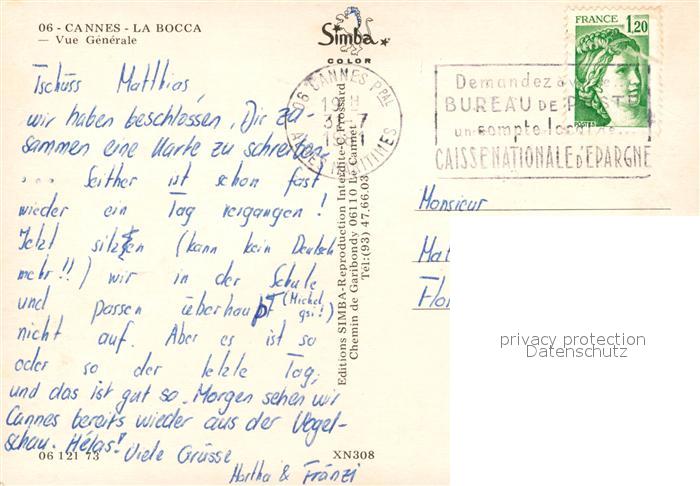 06 - CANNES - LA BOCCA
— Vue Générale
Simba
COLOR
FRANCE
1,20
POSTES
06 CANNES PPAL
19 H
3 - 7
ALPES MARITIMES
Demandez à
BUREAU DE POSTE
un compte
CAISSE NATIONALE D'EPARGNE
Tschüss Matthias,
wir haben beschlossen, Dir zu-
sammen eine Karte zu schreiben
.... Seither ist schon fast
wieder ein Tag vergangen!
Jetzt sitzen (kann kein Deutsch
mehr!!) wir in der Schule
und passen überhaupt (Michel
gsi!)
nicht auf. Aber es ist so
oder so der letzte Tag,
und das ist gut so. Morgen sehen wir
Cannes bereits wieder aus der Vogel-
schau. Hélas! Viele Grüsse
Martha & Fränzi
Editions SIMBA-Reproduction Interdite-C.Frossard
Chemin de Garibondy 06110 Le Cannet
Tél:(93) 47.66.03
Monsieur
Mat
Flor
privacy protection
Datenschutz
06 121 73
XN308